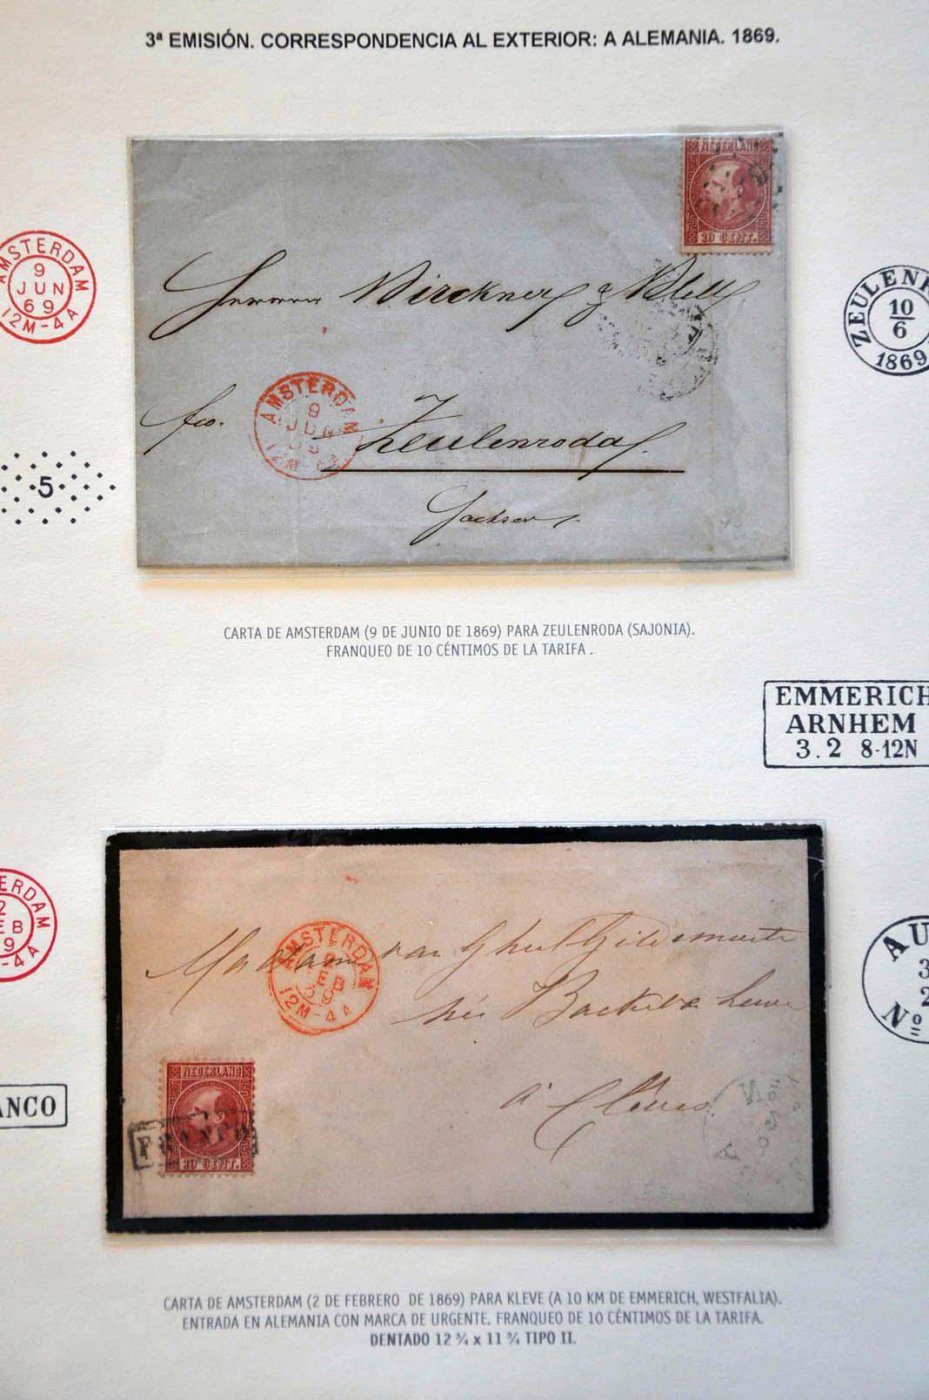 3ª EMISIÓN. CORRESPONDENCIA AL EXTERIOR: A ALEMANIA. 1869.
NEDERLAND
10 CENT.
AMSTERDAM
9
JUN
69
12M-4A
ZEULENR
10/6
1869
Herren Birckner &
AMSTERDAM
9
JUN
fco. Zeulenroda
Sachsen
5
CARTA DE AMSTERDAM (9 DE JUNIO DE 1869) PARA ZEULENRODA (SAJONIA).
FRANQUEO DE 10 CÉNTIMOS DE LA TARIFA .
EMMERICH
ARNHEM
3.2 8-12N
ERDAM
2
EB
9
-4A
AMSTERDAM
2
FEB
69
12M-4A
Madame van
à Clèves
AU
3
2
Nº
NEDERLAND
10 CENT.
FRANCO
ANCO
CARTA DE AMSTERDAM (2 DE FEBRERO DE 1869) PARA KLEVE (A 10 KM DE EMMERICH, WESTFALIA).
ENTRADA EN ALEMANIA CON MARCA DE URGENTE. FRANQUEO DE 10 CÉNTIMOS DE LA TARIFA.
DENTADO 12 ¾ x 11 ¾ TIPO II.